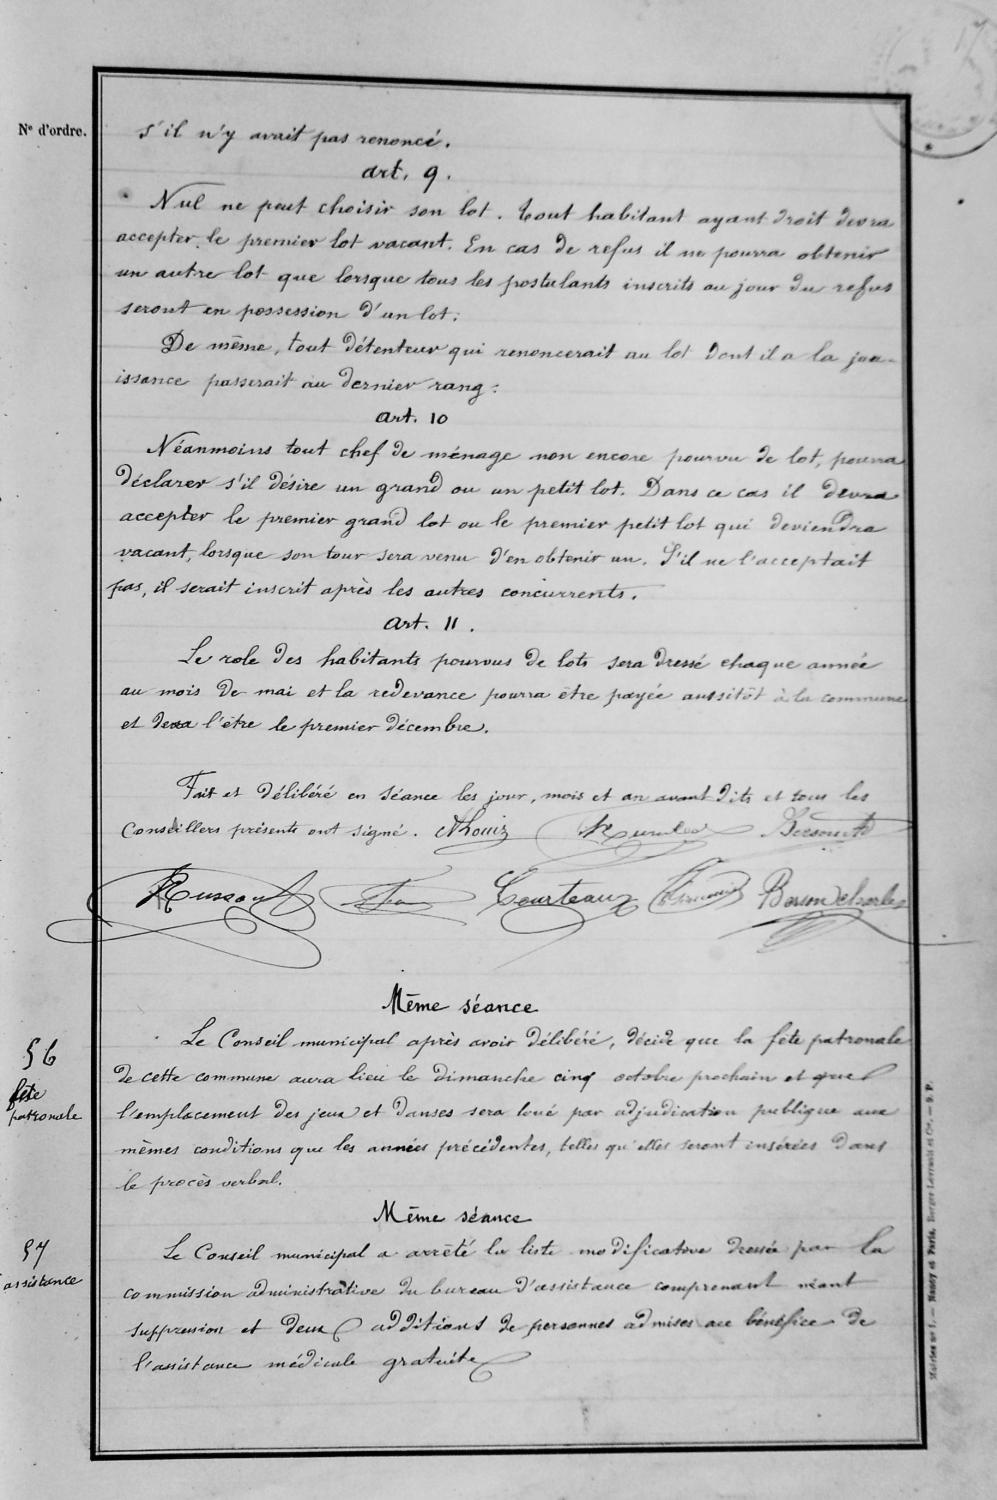 17
Nº d'ordre.
s'il n'y avait pas renoncé.
art. 9.
Nul ne peut choisir son lot. Tout habitant ayant droit devra
accepter le premier lot vacant. En cas de refus il ne pourra obtenir
un autre lot que lorsque tous les postulants inscrits au jour du refus
seront en possession d'un lot.
De même, tout détenteur qui renoncerait au lot dont il a la jou-
issance passerait au dernier rang.
art. 10
Néanmoins tout chef de ménage non encore pourvu de lot, pourra
déclarer s'il désire un grand ou un petit lot. Dans ce cas il devra
accepter le premier grand lot ou le premier petit lot qui deviendra
vacant, lorsque son tour sera venu d'en obtenir un. S'il ne l'acceptait
pas, il serait inscrit après les autres concurrents.
art. 11.
Le role des habitants pourvus de lots sera dressé chaque année
au mois de mai et la redevance pourra être payée aussitôt à la commune
et devra l'être le premier décembre.
Fait et délibéré en séance les jour, mois et an avant dits et tous les
Conseillers présents ont signé.
Courteaux Charles
Même séance
56
fête
patronale
Le Conseil municipal après avoir délibéré, décide que la fête patronale
de cette commune aura lieu le dimanche cinq octobre prochain et que
l'emplacement des jeux et danses sera loué par adjudication publique aux
mêmes conditions que les années précédentes, telles qu'elles seront insérées dans
le procès verbal.
Même séance
57
assistance
Le Conseil municipal a arrêté la liste modificative dressée par la
commission administrative du bureau d'assistance comprenant néant
suppression et deux additions de personnes admises au bénéfice de
l'assistance médicale gratuite
Mairies nº 1. — Nancy et Paris, Berger-Levrault et Cie. — S. P.